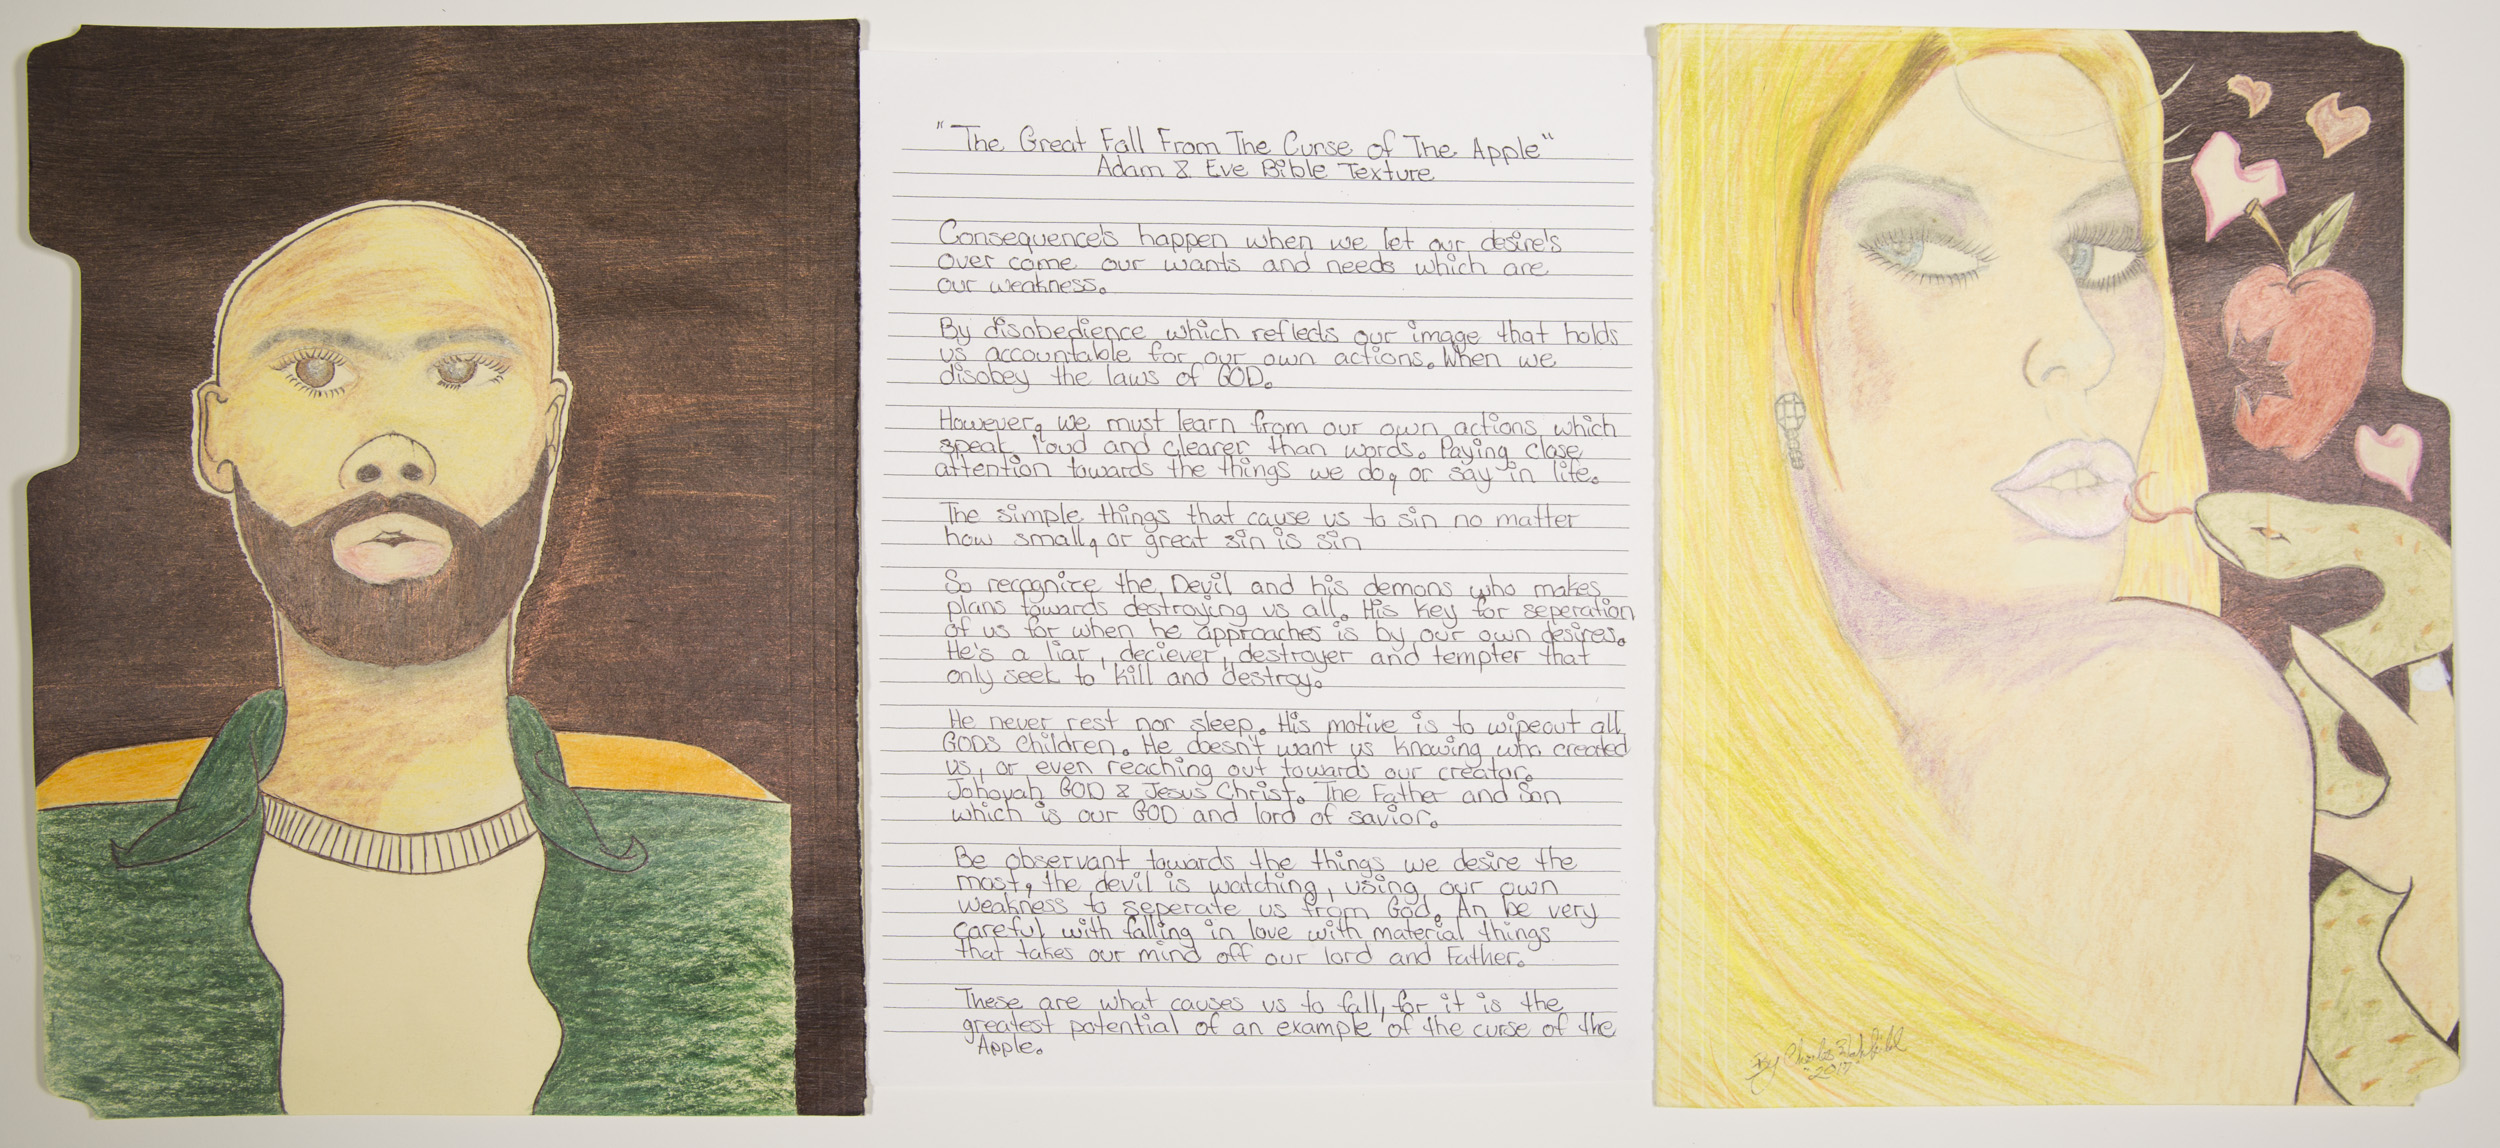 "The Great Fall From The Curse of The Apple"
Adam & Eve Bible Texture
Consequence's happen when we let our desire's
over come our wants and needs which are
our weakness.
By disobedience which reflects our image that holds
us accountable for our own actions. When we
disobey the laws of GOD.
However, we must learn from our own actions which
speak loud and clearer than words. Paying close
attention towards the things we do, or say in life.
The simple things that cause us to sin no matter
how small, or great sin is sin
So recognize the Devil and his demons who makes
plans towards destroying us all. His key for seperation
of us for when he approaches is by our own desires.
He's a liar, deciever, destroyer and tempter that
only seek to kill and destroy.
He never rest nor sleep. His motive is to wipeout all
GODS children. He doesn't want us knowing who created
us, or even reaching out towards our creator.
Johovah GOD & Jesus Christ. The Father and Son
which is our GOD and lord of savior.
Be observant towards the things we desire the
most, the devil is watching, using our own
weakness to seperate us from God. An be very
careful with falling in love with material things
that takes our mind off our lord and Father.
These are what causes us to fall, for it is the
greatest potential of an example of the curse of the
Apple.
By Charles
2017